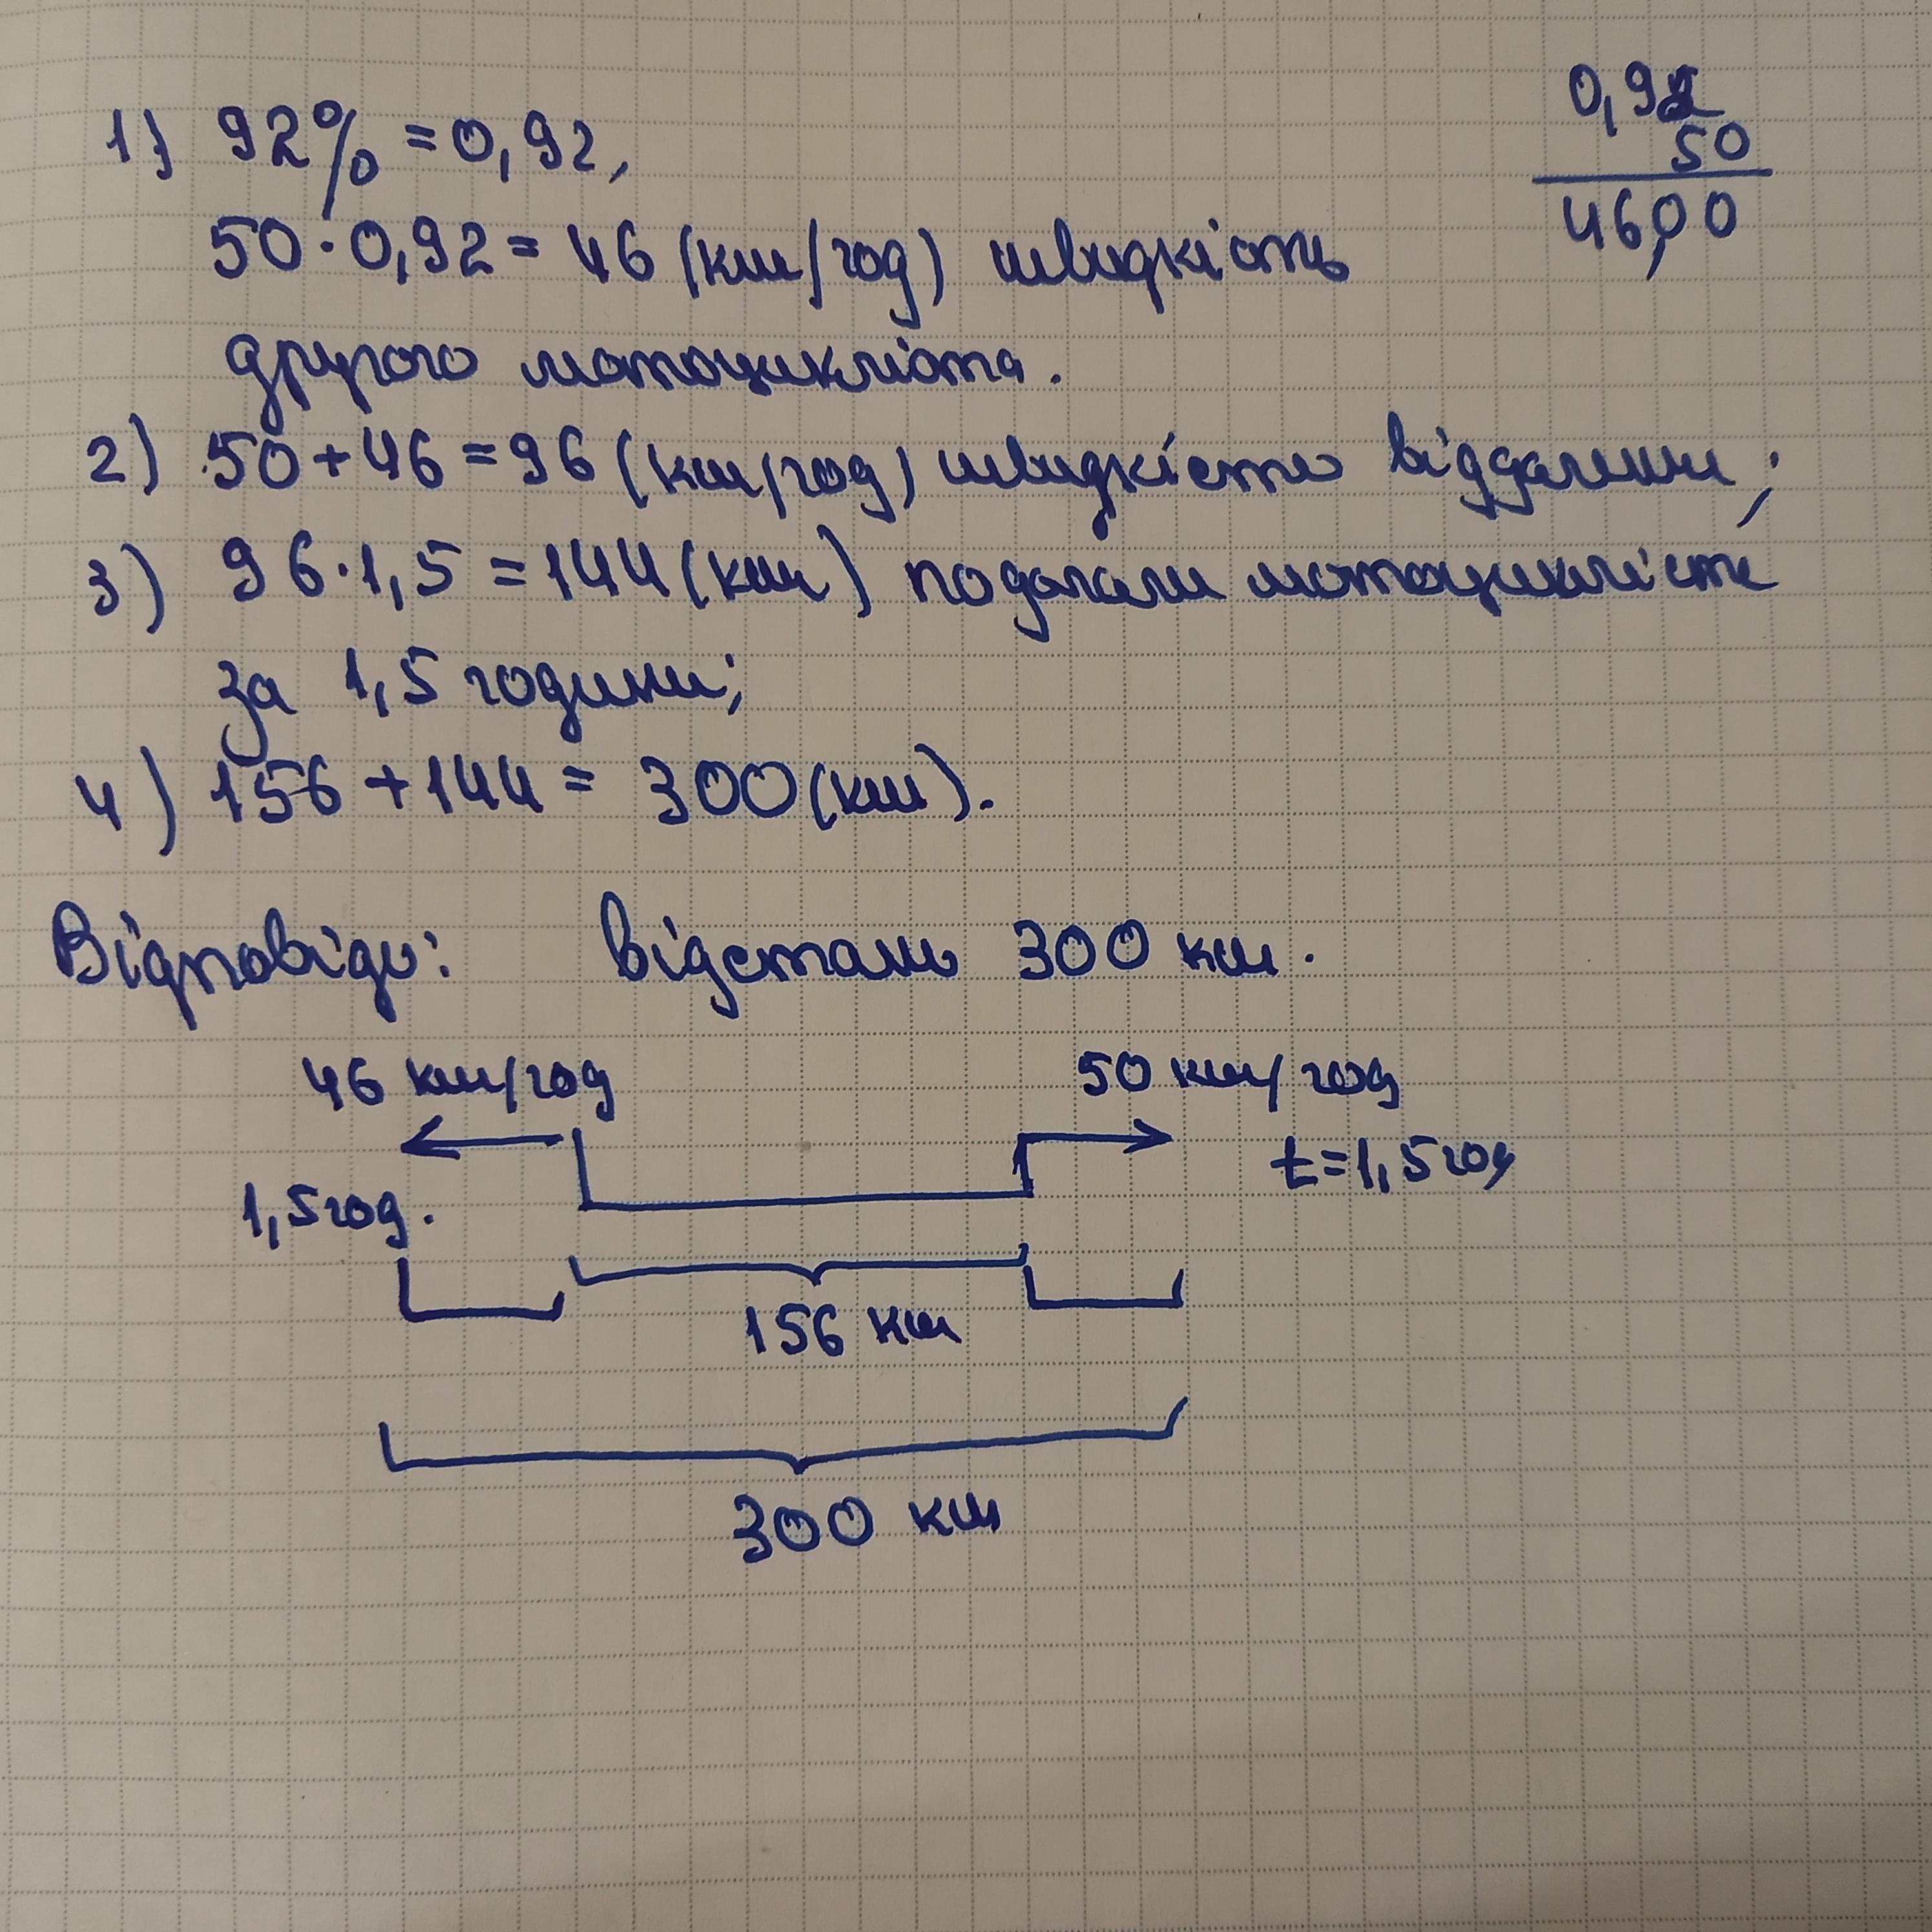 1) 92% = 0,92,
50 · 0,92 = 46 (км/год) швидкість
другого мотоцикліста.
0,92
50
46,00
2) 50 + 46 = 96 (км/год) швидкістю віддалини;
3) 96 · 1,5 = 144 (км) подолали мотоциклісти
за 1,5 години;
4) 156 + 144 = 300 (км).
Відповідь: відстань 300 км.
46 км/год 50 км/год
1,5 год. t = 1,5 год
156 км
300 км